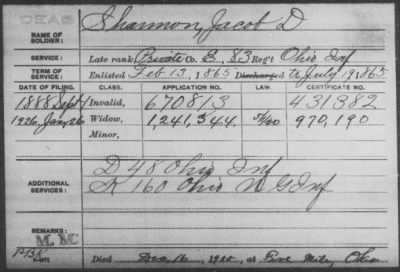 DEAS
NAME OF SOLDIER: Shannon, Jacob D
SERVICE: Late rank Private Co. E, 83 Reg't Ohio Inf
TERM OF SERVICE: Enlisted Feb 13, 1865 Discharged July 1865
DATE OF FILING. CLASS. APPLICATION NO. LAW. CERTIFICATE NO.
1888 Sept Invalid, 670813 431382
1926, Jan Widow, 1,241,344. 970,190
Minor,
ADDITIONAL SERVICES: D 48 Ohio Inf
K 160 Ohio N G Inf
REMARKS:
M, MC
Died Dec. at Five Mile, Ohio